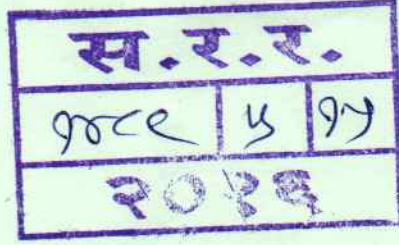 स.र.र.
१४८९ ५ १५
२०१६